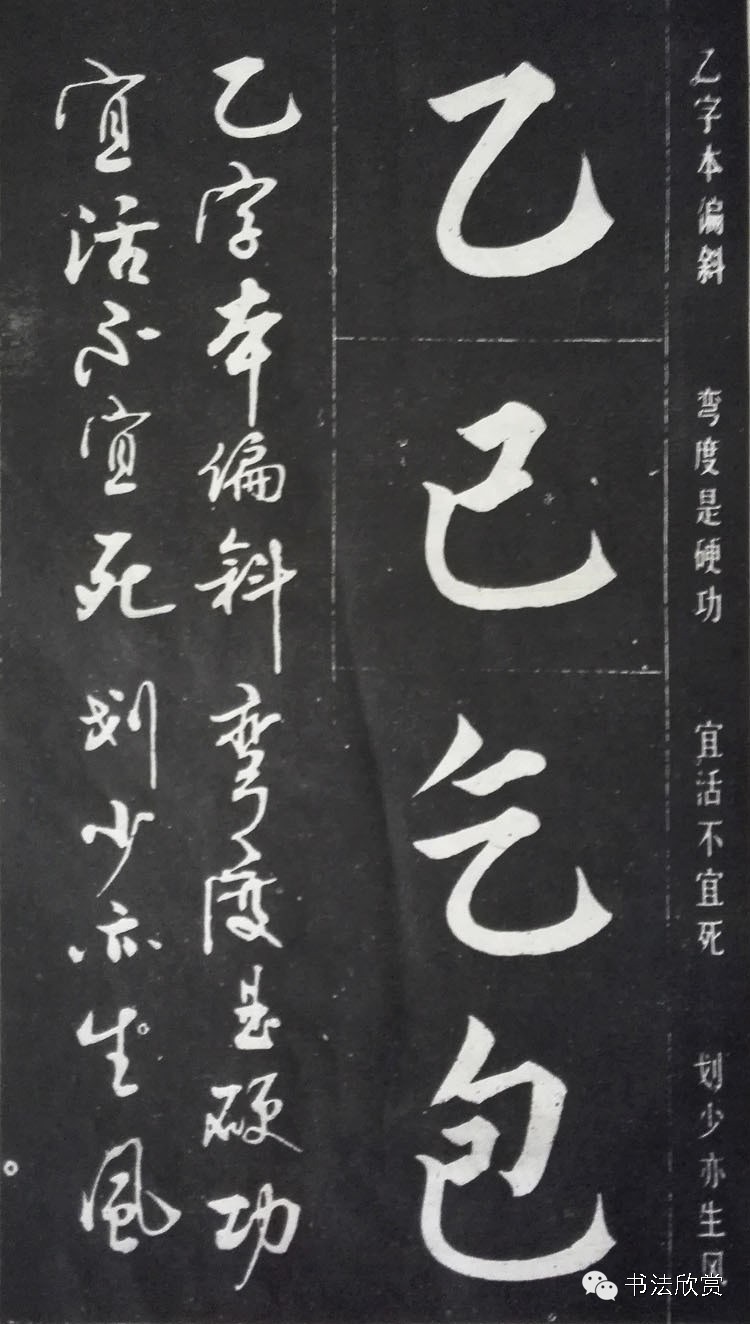 乙字本偏斜 弯度是硬功 宜活不宜死 划少亦生风
乙已乞包
乙字本偏斜弯度是硬功
宜活不宜死划少亦生风
书法欣赏